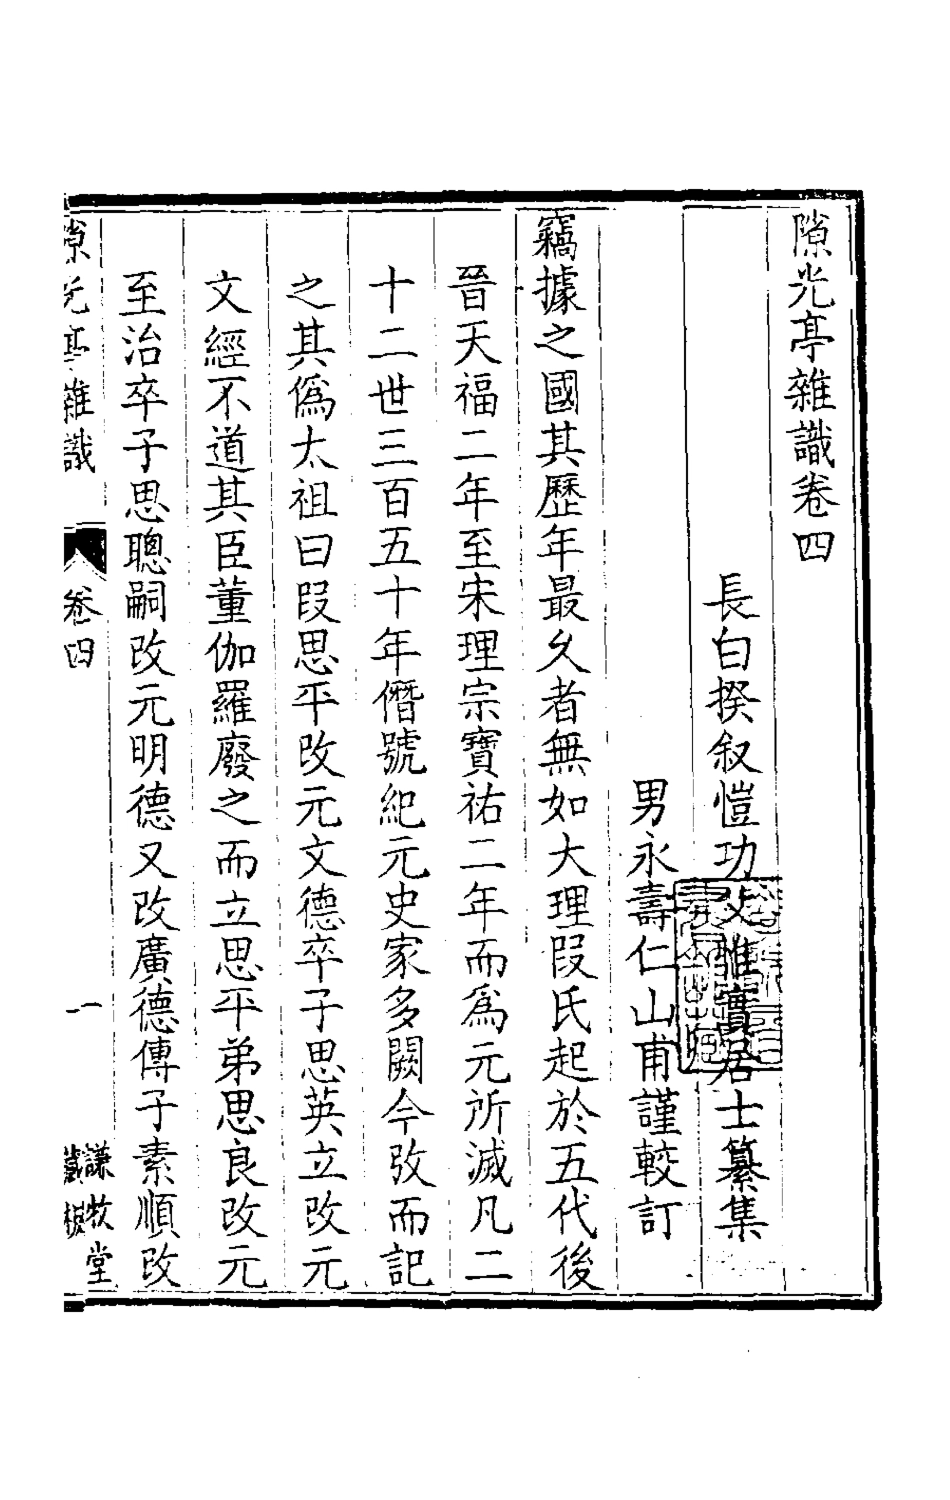 隙光亭雜識卷四
長白揆叙愷功父惟實居士纂集
男永壽仁山甫謹較訂
竊據之國其歷年最久者無如大理段氏起於五代後
晉天福二年至宋理宗寶祐二年而爲元所滅凡二
十二世三百五十年僭號紀元史家多闕今攷而記
之其僞太祖曰段思平改元文德卒子思英立改元
文經不道其臣董伽羅廢之而立思平弟思良改元
至治卒子思聰嗣改元明德又改廣德傳子素順改
隙光亭雜識
卷四
一
謙牧堂
藏板